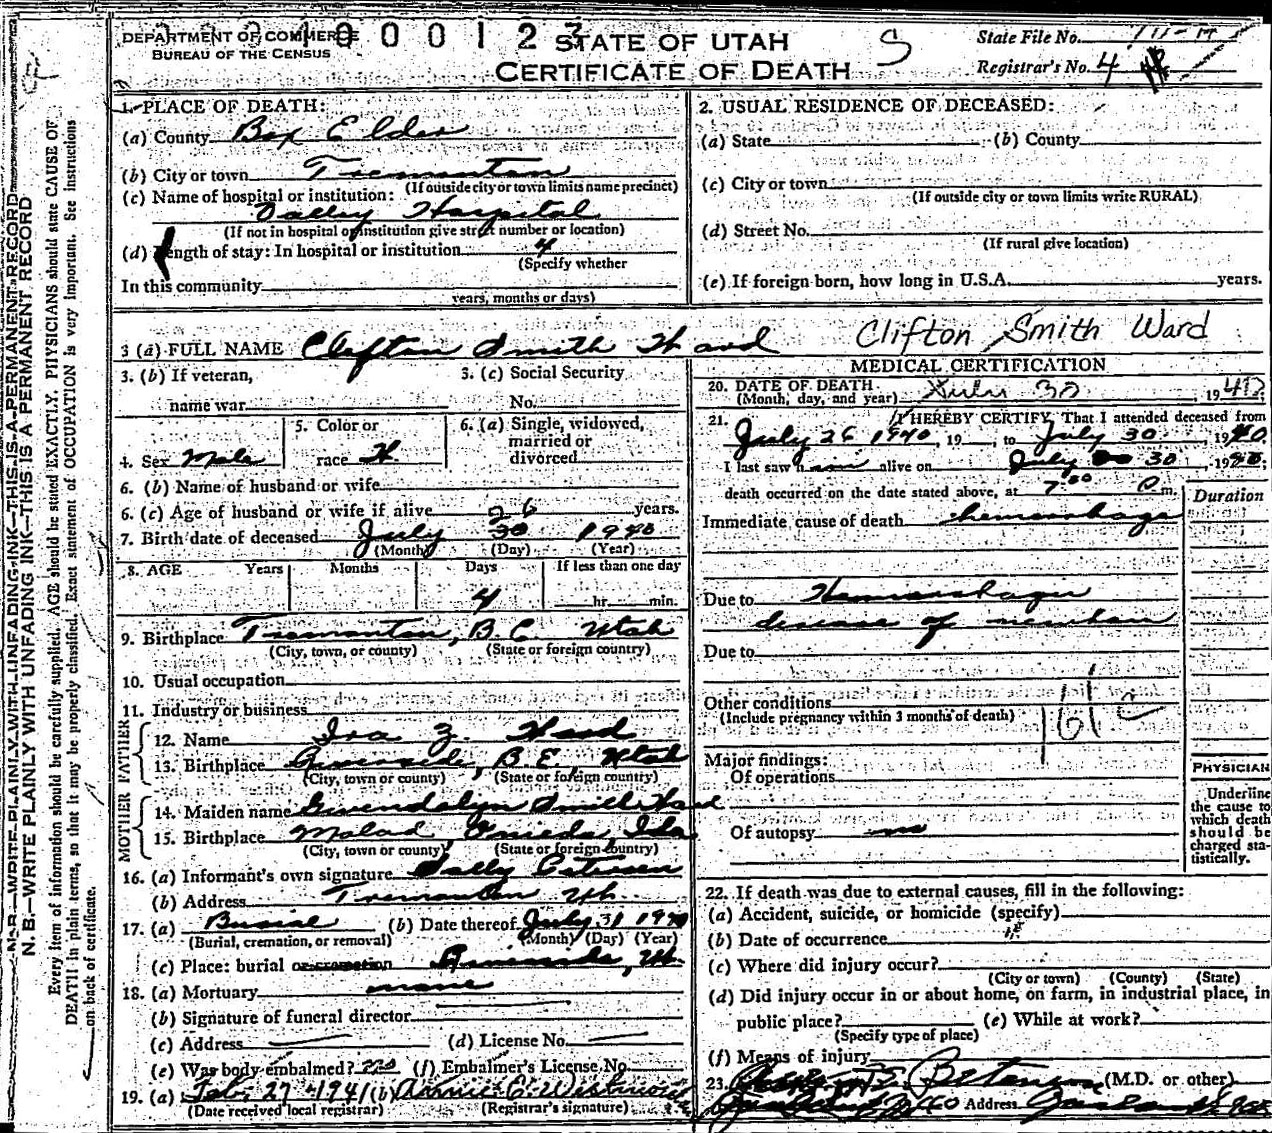 DEPARTMENT OF COMMERCE
BUREAU OF THE CENSUS
1 0 0 0 1 2
STATE OF UTAH
CERTIFICATE OF DEATH
S
State File No.
Registrar's No. 4
N. B.—WRITE PLAINLY WITH UNFADING INK—THIS IS A PERMANENT RECORD
N. B.—WRITE PLAINLY WITH UNFADING INK—THIS IS A PERMANENT RECORD
Every item of information should be carefully supplied. AGE should be stated EXACTLY. PHYSICIANS should state CAUSE OF
DEATH in plain terms, so that it may be properly classified. Exact statement of OCCUPATION is very important. See Instructions
on back of certificate.
1. PLACE OF DEATH:
(a) County Box Elder
(b) City or town Tremonton
(If outside city or town limits name precinct)
(c) Name of hospital or institution:
Valley Hospital
(If not in hospital or institution give street number or location)
(d) Length of stay: In hospital or institution 4
(Specify whether
In this community
years, months or days)
2. USUAL RESIDENCE OF DECEASED:
(a) State (b) County
(c) City or town
(If outside city or town limits write RURAL)
(d) Street No.
(If rural give location)
(e) If foreign born, how long in U.S.A. years.
3 (a) FULL NAME Clifton Smith Ward Clifton Smith Ward
3. (b) If veteran,
name war
3. (c) Social Security
No.
4. Sex Male
5. Color or
race W.
6. (a) Single, widowed,
married or
divorced
6. (b) Name of husband or wife
6. (c) Age of husband or wife if alive 26 years.
7. Birth date of deceased July 30 1940
(Month) (Day) (Year)
8. AGE Years Months Days If less than one day
4 hr. min.
9. Birthplace Tremonton, B.E. Utah
(City, town, or county) (State or foreign country)
10. Usual occupation
11. Industry or business
FATHER
12. Name Ira Z. Ward
13. Birthplace Riverside, B.E. Utah
(City, town or county) (State or foreign country)
MOTHER
14. Maiden name Gwendolyn Smith Ward
15. Birthplace Malad Oneida, Ida
(City, town or county) (State or foreign country)
16. (a) Informant's own signature Sally Petersen
(b) Address Tremonton Ut.
17. (a) Burial (b) Date thereof July 31 1940
(Burial, cremation, or removal) (Month) (Day) (Year)
(c) Place: burial or cremation Riverside, Ut.
18. (a) Mortuary none
(b) Signature of funeral director
(c) Address (d) License No.
(e) Was body embalmed? no (f) Embalmer's License No.
19. (a) Feb. 27-1941 (b) Annie C.
(Date received local registrar) (Registrar's signature)
MEDICAL CERTIFICATION
20. DATE OF DEATH July 30, 1940
(Month, day, and year)
21. I HEREBY CERTIFY, That I attended deceased from
July 26 1940, 19 to July 30, 1940.
I last saw him alive on July 30, 1940.
death occurred on the date stated above, at 7:00 P.m.
Duration
Immediate cause of death hemorrhage
Due to Hemorrhagic
disease of newborn
Due to
Other conditions
(Include pregnancy within 3 months of death)
161 c
Major findings:
Of operations
Of autopsy no
PHYSICIAN
Underline
the cause to
which death
should be
charged sta-
tistically.
22. If death was due to external causes, fill in the following:
(a) Accident, suicide, or homicide (specify)
(b) Date of occurrence
(c) Where did injury occur?
(City or town) (County) (State)
(d) Did injury occur in or about home, on farm, in industrial place, in
public place? (e) While at work?
(Specify type of place)
(f) Means of injury
23. (M.D. or other)
Address Garland